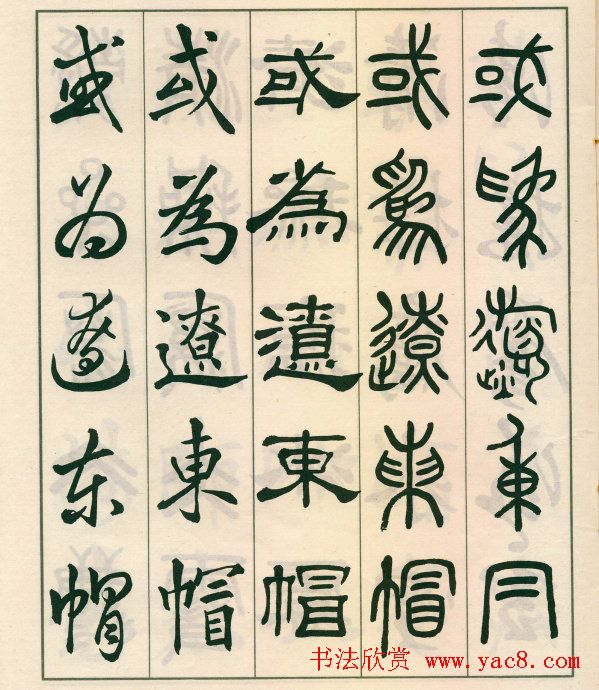 或為遼東冃
或為遼東帽
或為遼東帽
或為遼東帽
或為遼東帽
书法欣赏 www.yac8.com